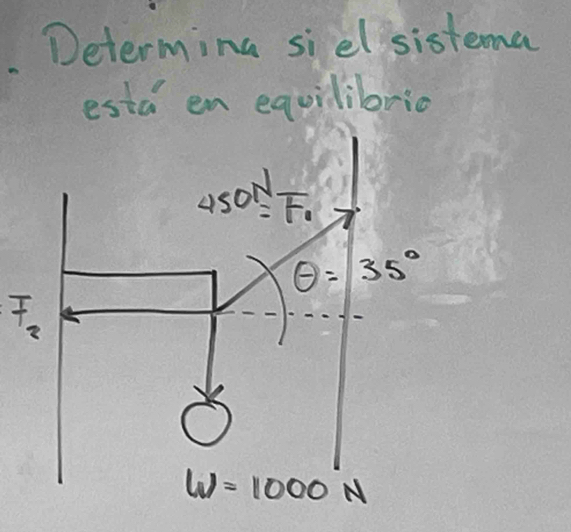 . Determina si el sistema
está en equilibrio
450N F₁
θ = 35°
F₂
W = 1000 N